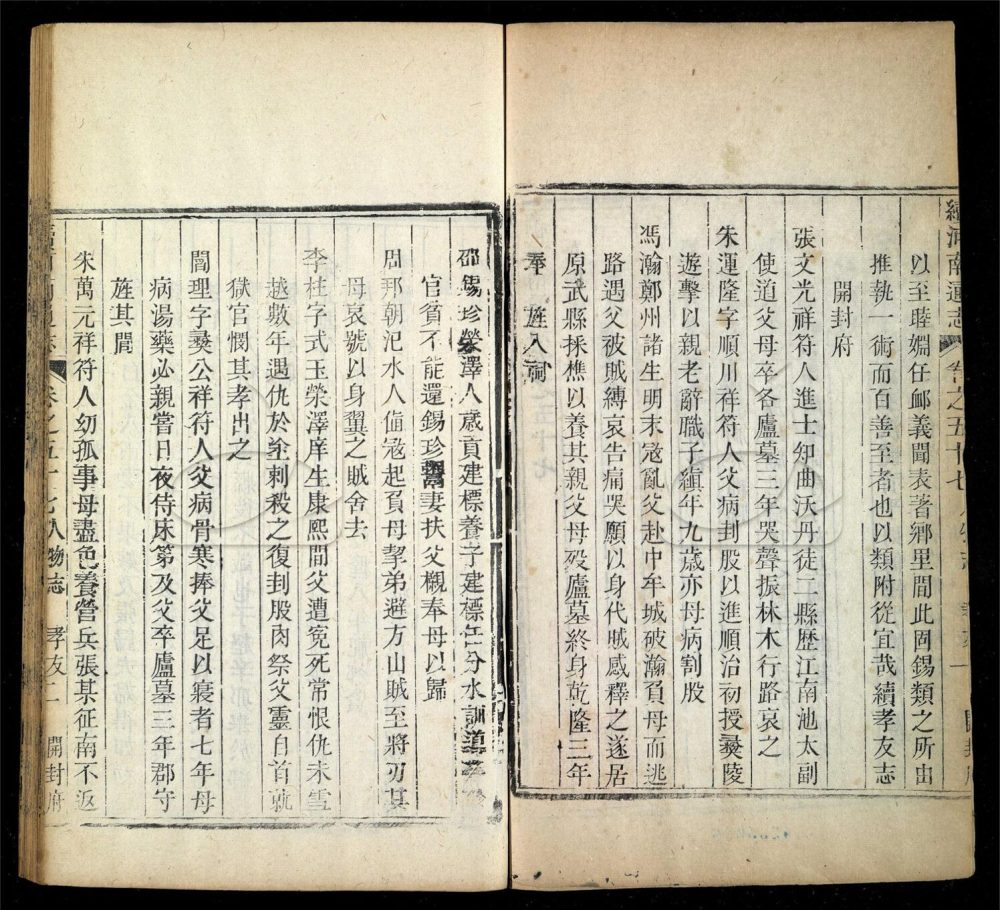 續河南通志 卷之五十七 人物志 孝友一 開封府
以至睦婣任䘏義聞表著鄉里間此固錫類之所由
推執一術而百善至者也以類附從宜哉續孝友志
開封府
張文光祥符人進士知曲沃丹徒二縣歷江南池太副
使迨父母卒各廬墓三年哭聲振林木行路哀之
朱運隆字順川祥符人父病刲股以進順治初授彝陵
遊擊以親老辭職子縝年九歲亦母病割股
馮瀚鄭州諸生明末寇亂父赴中牟城破瀚負母而逃
路遇父被賊縛哀告痛哭願以身代賊感釋之遂居
原武縣採樵以養其親父母歿廬墓終身乾隆三年
奉 旌入祠
邵錫珍滎澤人歲貢建標養子建標任分水訓導卒
官貧不能還錫珍鬻妻扶父櫬奉母以歸
周邦朝汜水人值寇起負母挈弟避方山賊至將刃其
母哀號以身翼之賊舍去
李柱字式玉滎澤庠生康熙間父遭寃死常恨仇未雪
越數年遇仇於途刺殺之復刲股肉祭父靈自首就
獄官憫其孝出之
閻理字彝公祥符人父病骨寒捧父足以寢者七年母
病湯藥必親嘗日夜侍床第及父卒廬墓三年郡守
旌其閭
朱萬元祥符人幼孤事母盡色養營兵張某征南不返
續河南通志 卷之五十七 人物志 孝友二 開封府